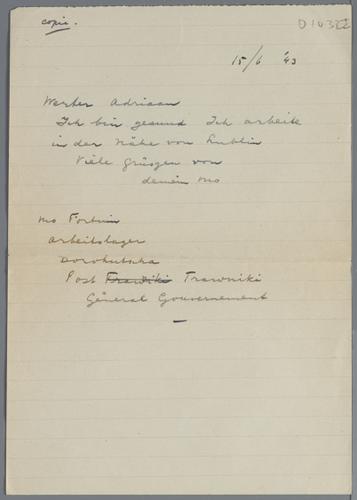 copie.
D14382
15/6 '43
Werter Adriaan
Ich bin gesund Ich arbeite
in der Nähe von Lublin
Viele Grüsgen von
deinem Mo
Mo Fortuin
Arbeitslager
Dorohutscha
Post Trawniki
Géneral Gouvernement